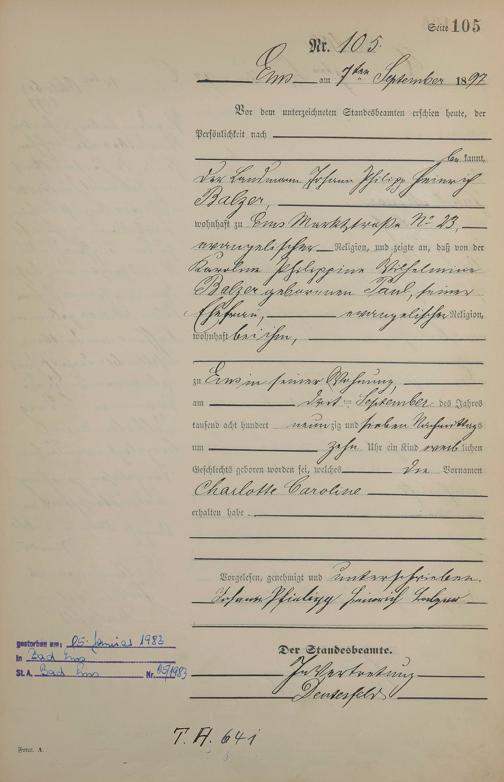 Seite 105
Nr. 105.
Ems am 7ten September 1897
Vor dem unterzeichneten Standesbeamten erschien heute, der
Persönlichkeit nach
be kannt,
der Landmann Johann Philipp Heinrich
Balzer,
wohnhaft zu Ems Marktstraße No 23,
evangelischer Religion, und zeigte an, daß von der
Karoline Philippine Wilhelmine
Balzer geborenen Paul, seiner
Ehefrau, evangelischer Religion,
wohnhaft bei ihm,
zu Ems in seiner Wohnung,
am September des Jahres
tausend acht hundert neunzig und sieben Nachmittags
um zehn Uhr ein Kind weiblichen
Geschlechts geboren worden sei, welches die Vornamen
Charlotte Caroline
erhalten habe.
Vorgelesen, genehmigt und unterschrieben.
Johann Philipp Heinrich Balzer
Der Standesbeamte.
In Vertretung
gestorben am: 05. Januar 1983
in Bad Ems
St.A. Bad Ems Nr. /1983
T. A. 641
Form. A.